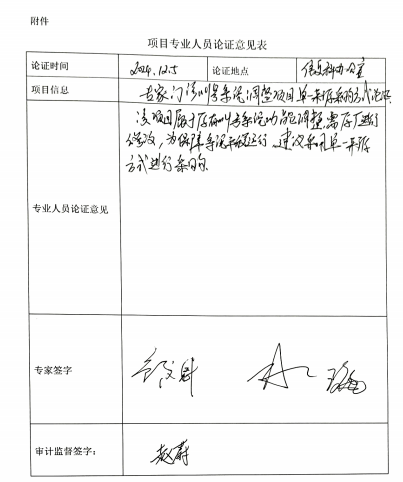 附件
项目专业人员论证意见表
论证时间 2024.12.5 论证地点 信息科办公室
项目信息 专家门诊叫号系统调整项目单一来源采购方式论证
该项目属于原有叫号系统功能调整,需原厂进行
修改,为保障系统正常运行,建议采用单一来源
方式进行采购。
专业人员论证意见
专家签字
审计监督签字: 赵蔚